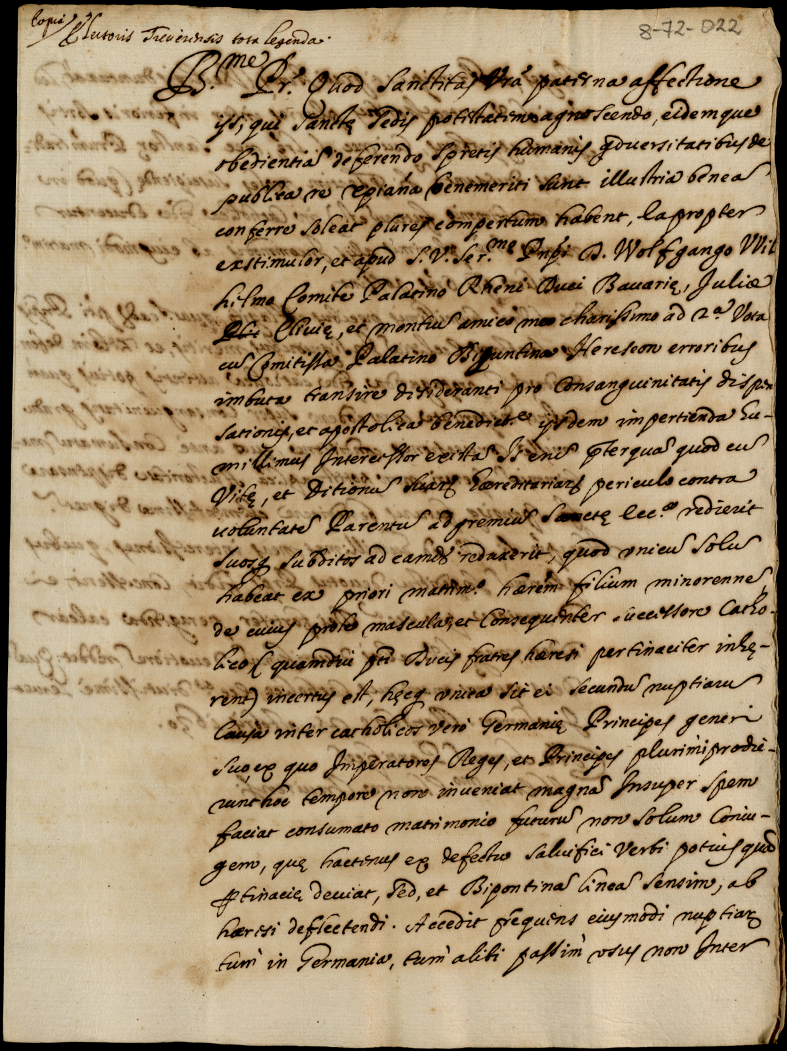 Copia
Electoris Treverensis tota legenda.
8-72-022
B.me Pr. Quod Sanctitas Vra paterna affectione
ijs, qui Sanctę Sedis potestatem agnoscendo, eidemque
obedientiã deferendo, spretis humanis adversitatibus de
publica re xpiana benemeriti sunt illustria benea
conferre soleat plures compertum habent, ea propter
exstimulor, et apud S.V. Ser.mo Pnpi D. Wolfgango Wil
hilmo Comite Palatino Rheni Duci Bavarię, Julię
Clivię, et montiũ amico meo charissimo ad 2.a Vota
cũ Comitissa Palatina Bipuntina Hereseon erroribus
imbuta transire desideranti pro Consanguinitatis dispen
sationis, et apostolica benedict.e ijsdem impertienda hu-
millimus Intercessor existã Is enĩ pterquã quod cũ
Vitę, et Ditionũ suarũ hæreditariarũ periculo contra
voluntatẽ Parentũ ad gremiũ Sanctę Ecc.ę redierit
suosq subditos ad eamdẽ reduxerit, quod unicũ solũ
habeat ex priori matrim.o hærẽm filium minorennẽ
de cuius prole mascula, et Consequenter successore Catho-
lico (quamdiu pti Ducis fratres hæresi pertinaciter inhę-
rent) incertus est, hęcq unica sit ei secundarũ nuptiarũ
Causa inter catholicos verò Germanię Principes generi
suo, ex quo Imperatores Reges, et Principes plurimi prodie-
runt hoc tempore non inveniat magnã Insuper spem
faciat consumato matrimonio futurũ non solum Coniu-
gem, quę hactenus ex defectu salvifici Verbi potius quã
ptinacię deviat, sed, et Bipontinã lineã sensim, ab
hæresi deflectendi. Accedit frequens eiusmodi nuptiarũ
tum in Germania, tum alibi passim usus non Inter